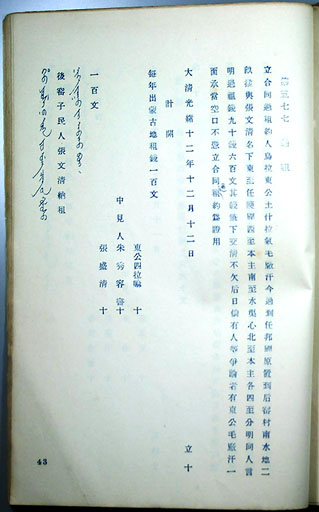 第三七七
立合同過租約人烏拉東公土什拉氣毛廠汗今過到任邦卿原置到后窰村南水地二
畝後與張文清名下東至任 卿西至本主南至水渠心北至本主各四至分明同人言
明過租錢九十 六百文其錢筆下交清不欠后日倘有人等爭論者有東公毛廠汗一
面承當空口不憑立合同租約為證用
大清光緒十二年十二月十二日 立十
計開
每年出蒙古地租錢一百文
東公四拉嘛 十
中見人朱秀容書十
張盛清 十
一百文
後窰子民人張文清納租
43